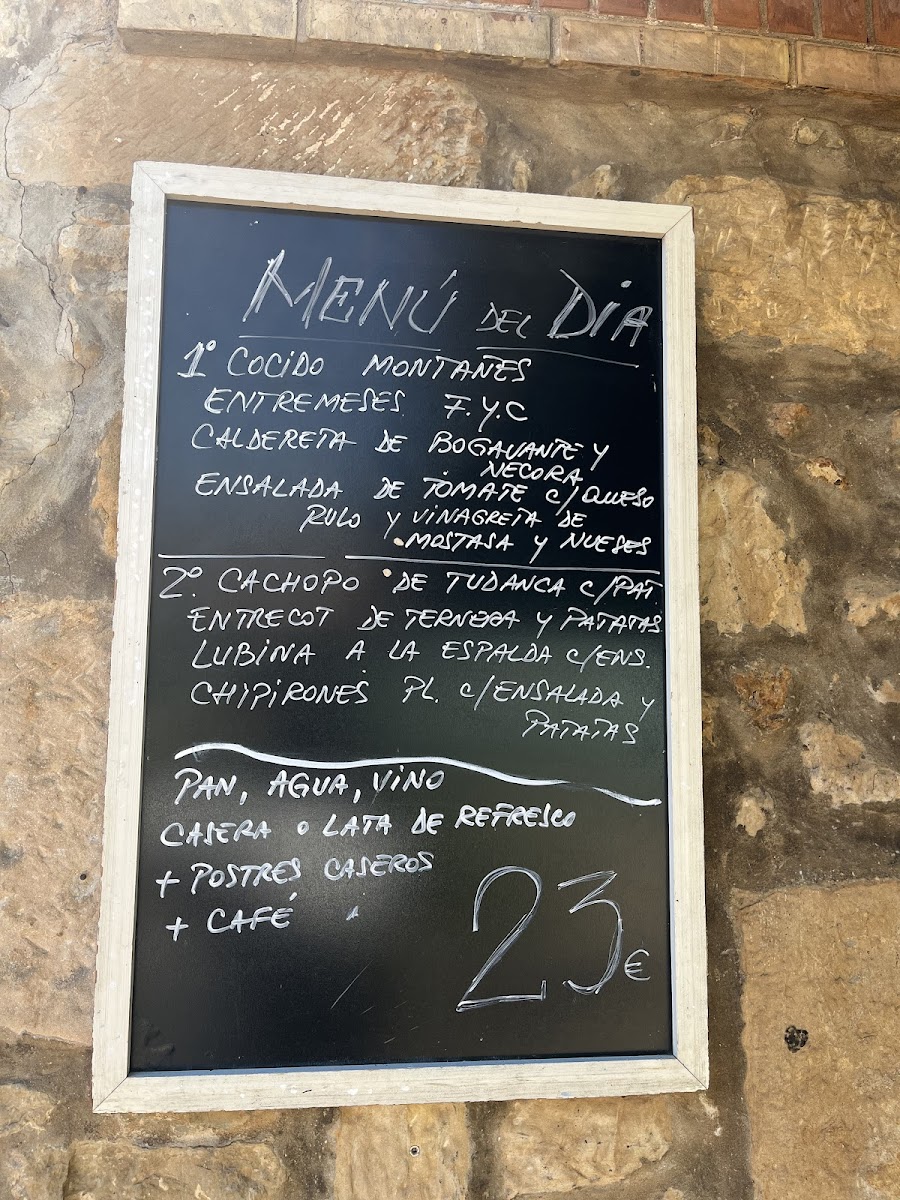 MENÚ DEL DIA
1º COCIDO MONTAÑES
ENTREMESES F.Y.C
CALDERETA DE BOGAVANTE Y
NECORA
ENSALADA DE TOMATE C/QUESO
RULO Y VINAGRETA DE
MOSTASA Y NUESES
2º. CACHOPO DE TUDANCA C/PAT.
ENTRECOT DE TERNERA Y PATATAS
LUBINA A LA ESPALDA C/ENS.
CHIPIRONES PL. C/ENSALADA Y
PATATAS
PAN, AGUA, VINO
CASERA O LATA DE REFRESCO
+ POSTRES CASEROS
+ CAFÉ
23€